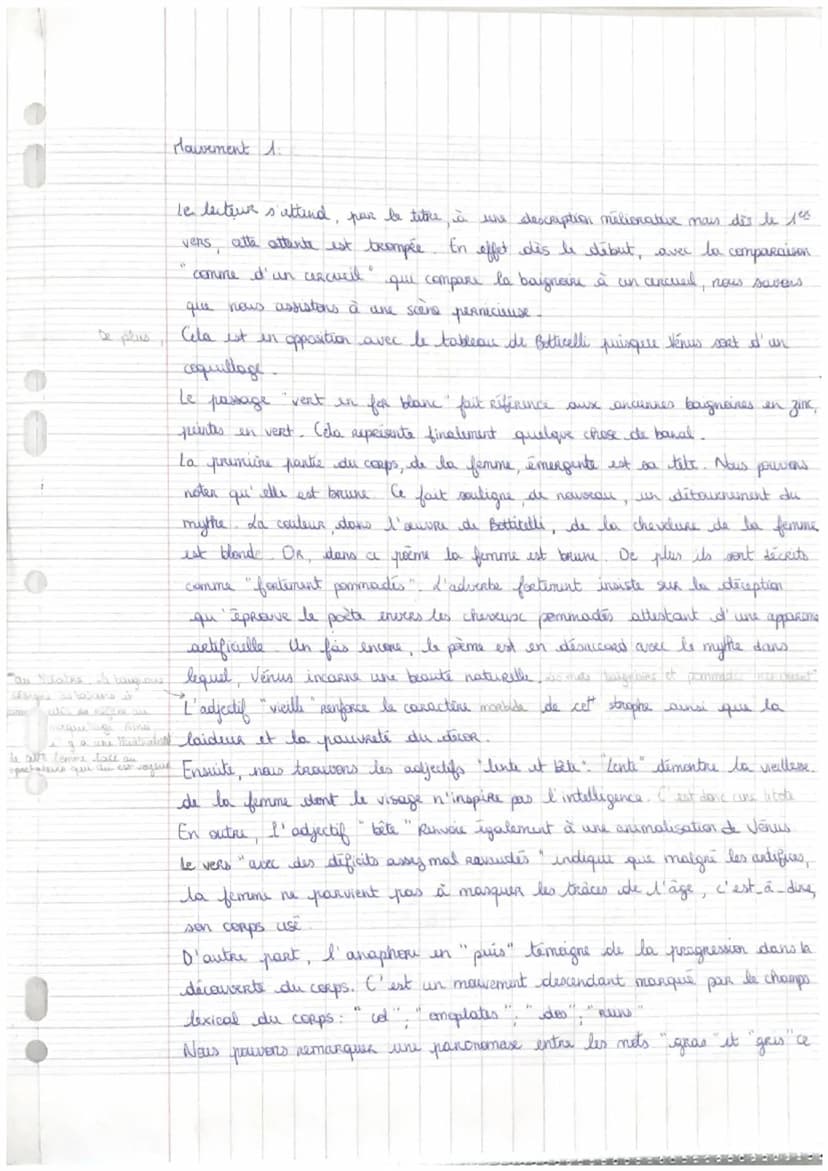 Mouvement 1.
Le lecteur s'attend, par le titre, à une description méliorative mais dès le 1er
vers, cette attente est trompée. En effet dès le début, avec la comparaison
"comme d'un cercueil" qui compare la baignoire à un cercueil, nous savons
que nous assistons à une scène pernicieuse.
De plus, Cela est en opposition avec le tableau de Botticelli puisque Vénus sort d'un
coquillage.
Le passage "vert en fer blanc" fait référence aux anciennes baignoires en zinc,
peintes en vert. Cela représente finalement quelque chose de banal.
La première partie du corps, de la femme, émergente est sa tête. Nous pouvons
noter qu'elle est brune. Ce fait souligne, de nouveau, un détournement du
mythe. La couleur, dans l'œuvre de Botticelli, de la chevelure de la femme
est blonde. OR, dans ce poème la femme est brune. De plus ils sont décrits
comme "fortement pommadés". L'adverbe fortement insiste sur la déception
qu'éprouve le poète envers les cheveux pommadés attestant d'une apparence
artificielle. Un fois encore, le poème est en désaccord avec le mythe dans
lequel, Vénus incarne une beauté naturelle.
L'adjectif "vieille" renforce le caractère morbide de cett strophe ainsi que la
laideur et la pauvreté du décor.
Ensuite, nous trouvons les adjectifs "lente et bête". "Lente" démontre la vieillesse
de la femme dont le visage n'inspire pas l'intelligence. C'est donc une litote
En outre, l'adjectif "bête" renvoie également à une animalisation de Vénus
Le vers "avec des déficits assez mal ravaudés" indique que malgré les artifices,
la femme ne parvient pas à masquer les traces de l'âge, c'est-à-dire,
son corps usé.
D'autre part, l'anaphore en "puis" témoigne de la progression dans la
découverte du corps. C'est un mouvement descendant marqué par le champs
lexical du corps: "col"; "omoplates"; "dos"; "reins"
Nous pouvons remarquer une paronomase entre les mots "gras" et "gris" ce